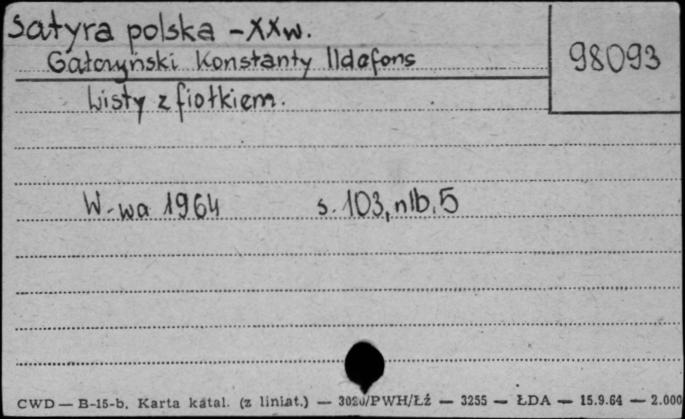 Satyra polska - XXw.
98093
Gałczyński Konstanty Ildefons
Listy z fiołkiem.
W-wa 1964 s. 103, nlb. 5
CWD — B-15-b. Karta katal. (z liniat.) — 3020/PWH/Łż — 3255 — ŁDA — 15.9.64 — 2.000